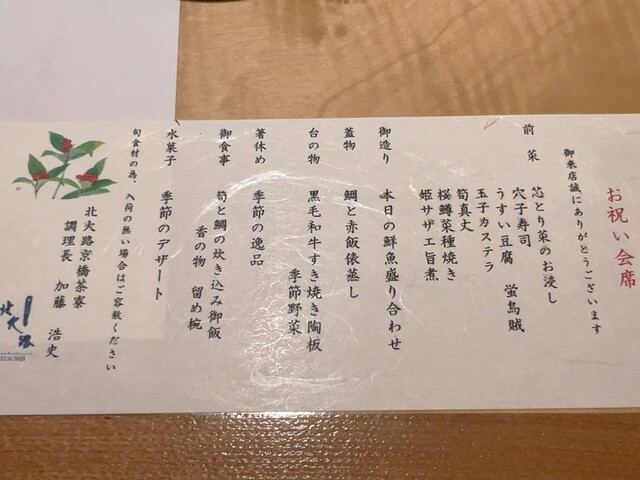 お祝い会席
御来店誠にありがとうございます
前菜
芯とり菜のお浸し
穴子寿司 蛍烏賊
うすい豆腐
玉子カステラ
筍真丈
桜鱒菜種焼き
姫サザエ旨煮
御造り 本日の鮮魚盛り合わせ
蓋物 鯛と赤飯俵蒸し
台の物 黒毛和牛すき焼き陶板
季節野菜
箸休め 季節の逸品
御食事 筍と鯛の炊き込み御飯
香の物 留め椀
水菓子 季節のデザート
旬食材の為、入荷の無い場合はご容赦ください
北大路京橋茶寮
調理長 加藤 浩史
北大路